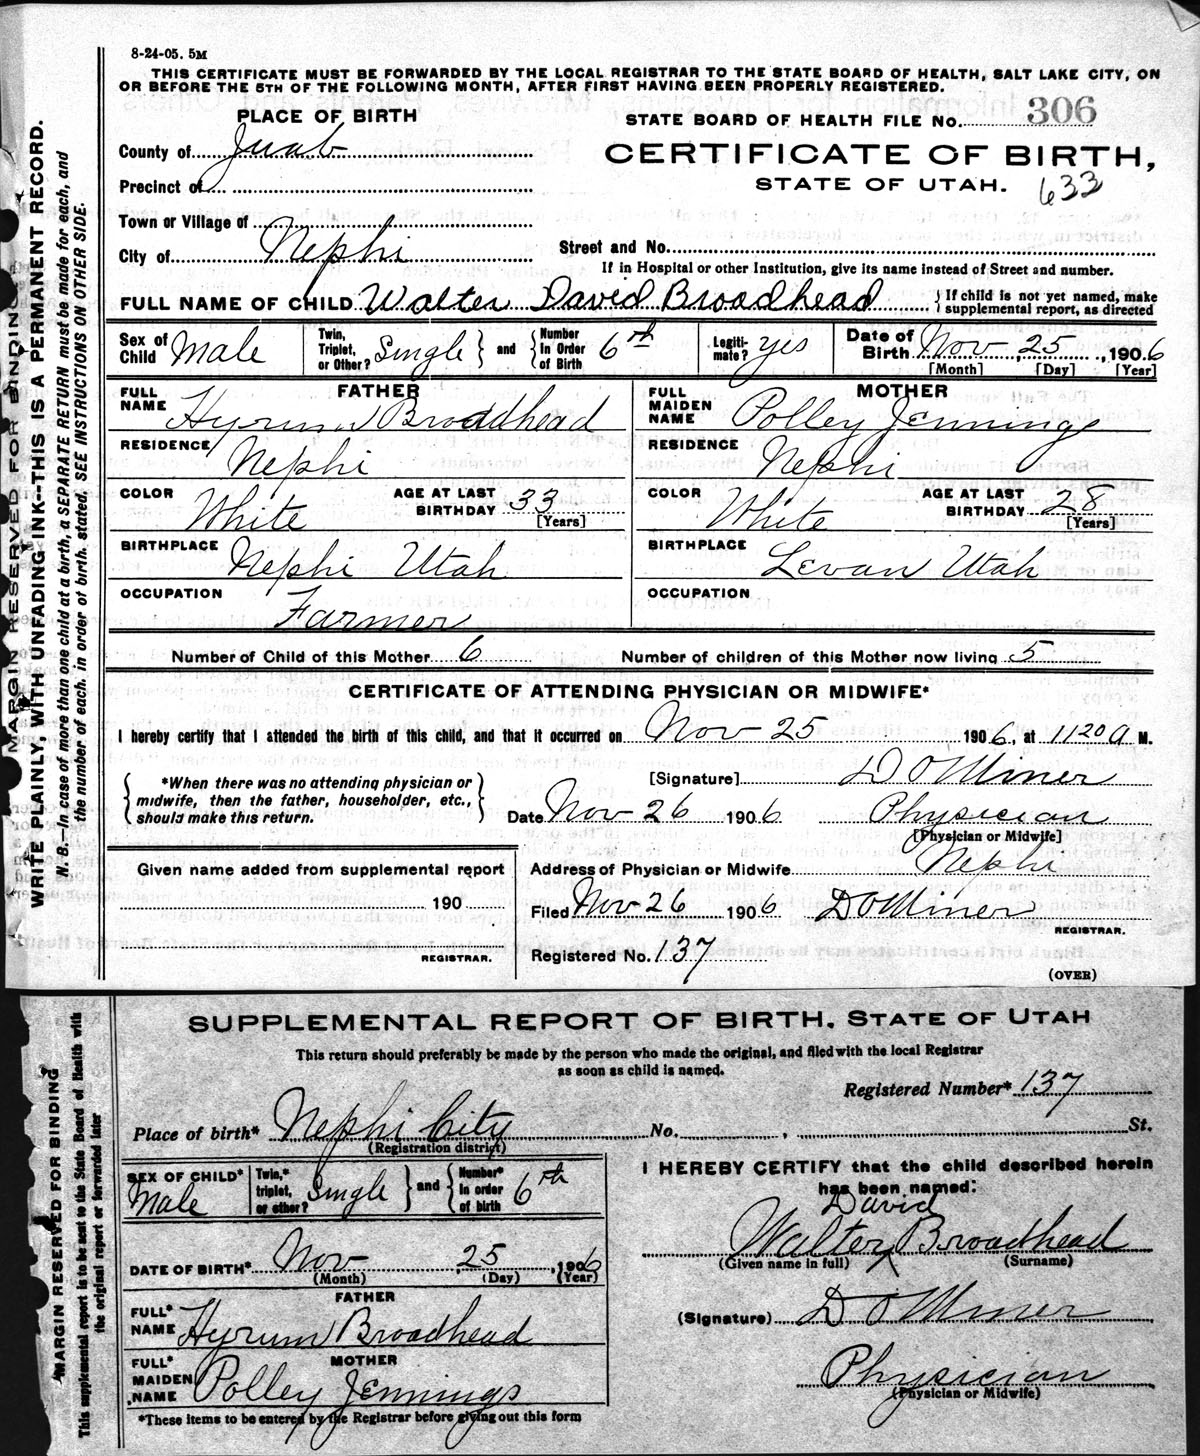 8-24-05. 5M
THIS CERTIFICATE MUST BE FORWARDED BY THE LOCAL REGISTRAR TO THE STATE BOARD OF HEALTH, SALT LAKE CITY, ON
OR BEFORE THE 5TH OF THE FOLLOWING MONTH, AFTER FIRST HAVING BEEN PROPERLY REGISTERED.
MARGIN RESERVED FOR BINDING
WRITE PLAINLY, WITH UNFADING INK--THIS IS A PERMANENT RECORD.
N. B.—In case of more than one child at a birth, a SEPARATE RETURN must be made for each, and
the number of each, in order of birth, stated. SEE INSTRUCTIONS ON OTHER SIDE.
PLACE OF BIRTH
STATE BOARD OF HEALTH FILE No. 306
County of Juab
CERTIFICATE OF BIRTH,
Precinct of
STATE OF UTAH. 633
Town or Village of
City of Nephi
Street and No.
If in Hospital or other Institution, give its name instead of Street and number.
FULL NAME OF CHILD Walter David Broadhead { If child is not yet named, make
supplemental report, as directed
Sex of Child Male Twin, Triplet, or Other? Single } and { Number In Order of Birth 6th Legiti-mate? yes Date of Birth Nov 25, 1906
[Month] [Day] [Year]
FATHER MOTHER
FULL NAME Hyrum Broadhead FULL MAIDEN NAME Polley Jennings
RESIDENCE Nephi RESIDENCE Nephi
COLOR White AGE AT LAST BIRTHDAY 33 [Years] COLOR White AGE AT LAST BIRTHDAY 28 [Years]
BIRTHPLACE Nephi Utah BIRTHPLACE Levan Utah
OCCUPATION Farmer OCCUPATION
Number of Child of this Mother 6 Number of children of this Mother now living 5
CERTIFICATE OF ATTENDING PHYSICIAN OR MIDWIFE*
I hereby certify that I attended the birth of this child, and that it occurred on Nov 25 1906, at 1120 a M.
{ *When there was no attending physician or
midwife, then the father, householder, etc.,
should make this return. }
[Signature] D O Miner
Date Nov 26 1906 Physician
[Physician or Midwife]
Given name added from supplemental report
Address of Physician or Midwife Nephi
190
Filed Nov 26 1906 D O Miner
REGISTRAR.
REGISTRAR.
Registered No. 137
(OVER)
MARGIN RESERVED FOR BINDING
This supplemental report is to be sent to the State Board of Health with
the original report or forwarded later
SUPPLEMENTAL REPORT OF BIRTH, STATE OF UTAH
This return should preferably be made by the person who made the original, and filed with the local Registrar
as soon as child is named.
Registered Number* 137
Place of birth* Nephi City No. , St.
(Registration district)
SEX OF CHILD* Male Twin,* triplet, or other? Single } and { Number* in order of birth 6th
I HEREBY CERTIFY that the child described herein
has been named:
David
Walter X Broadhead
(Given name in full) (Surname)
DATE OF BIRTH* Nov 25, 1906
(Month) (Day) (Year)
FATHER
FULL* NAME Hyrum Broadhead
(Signature) D O Miner
MOTHER
FULL* MAIDEN NAME Polley Jennings
Physician
(Physician or Midwife)
*These items to be entered by the Registrar before giving out this form